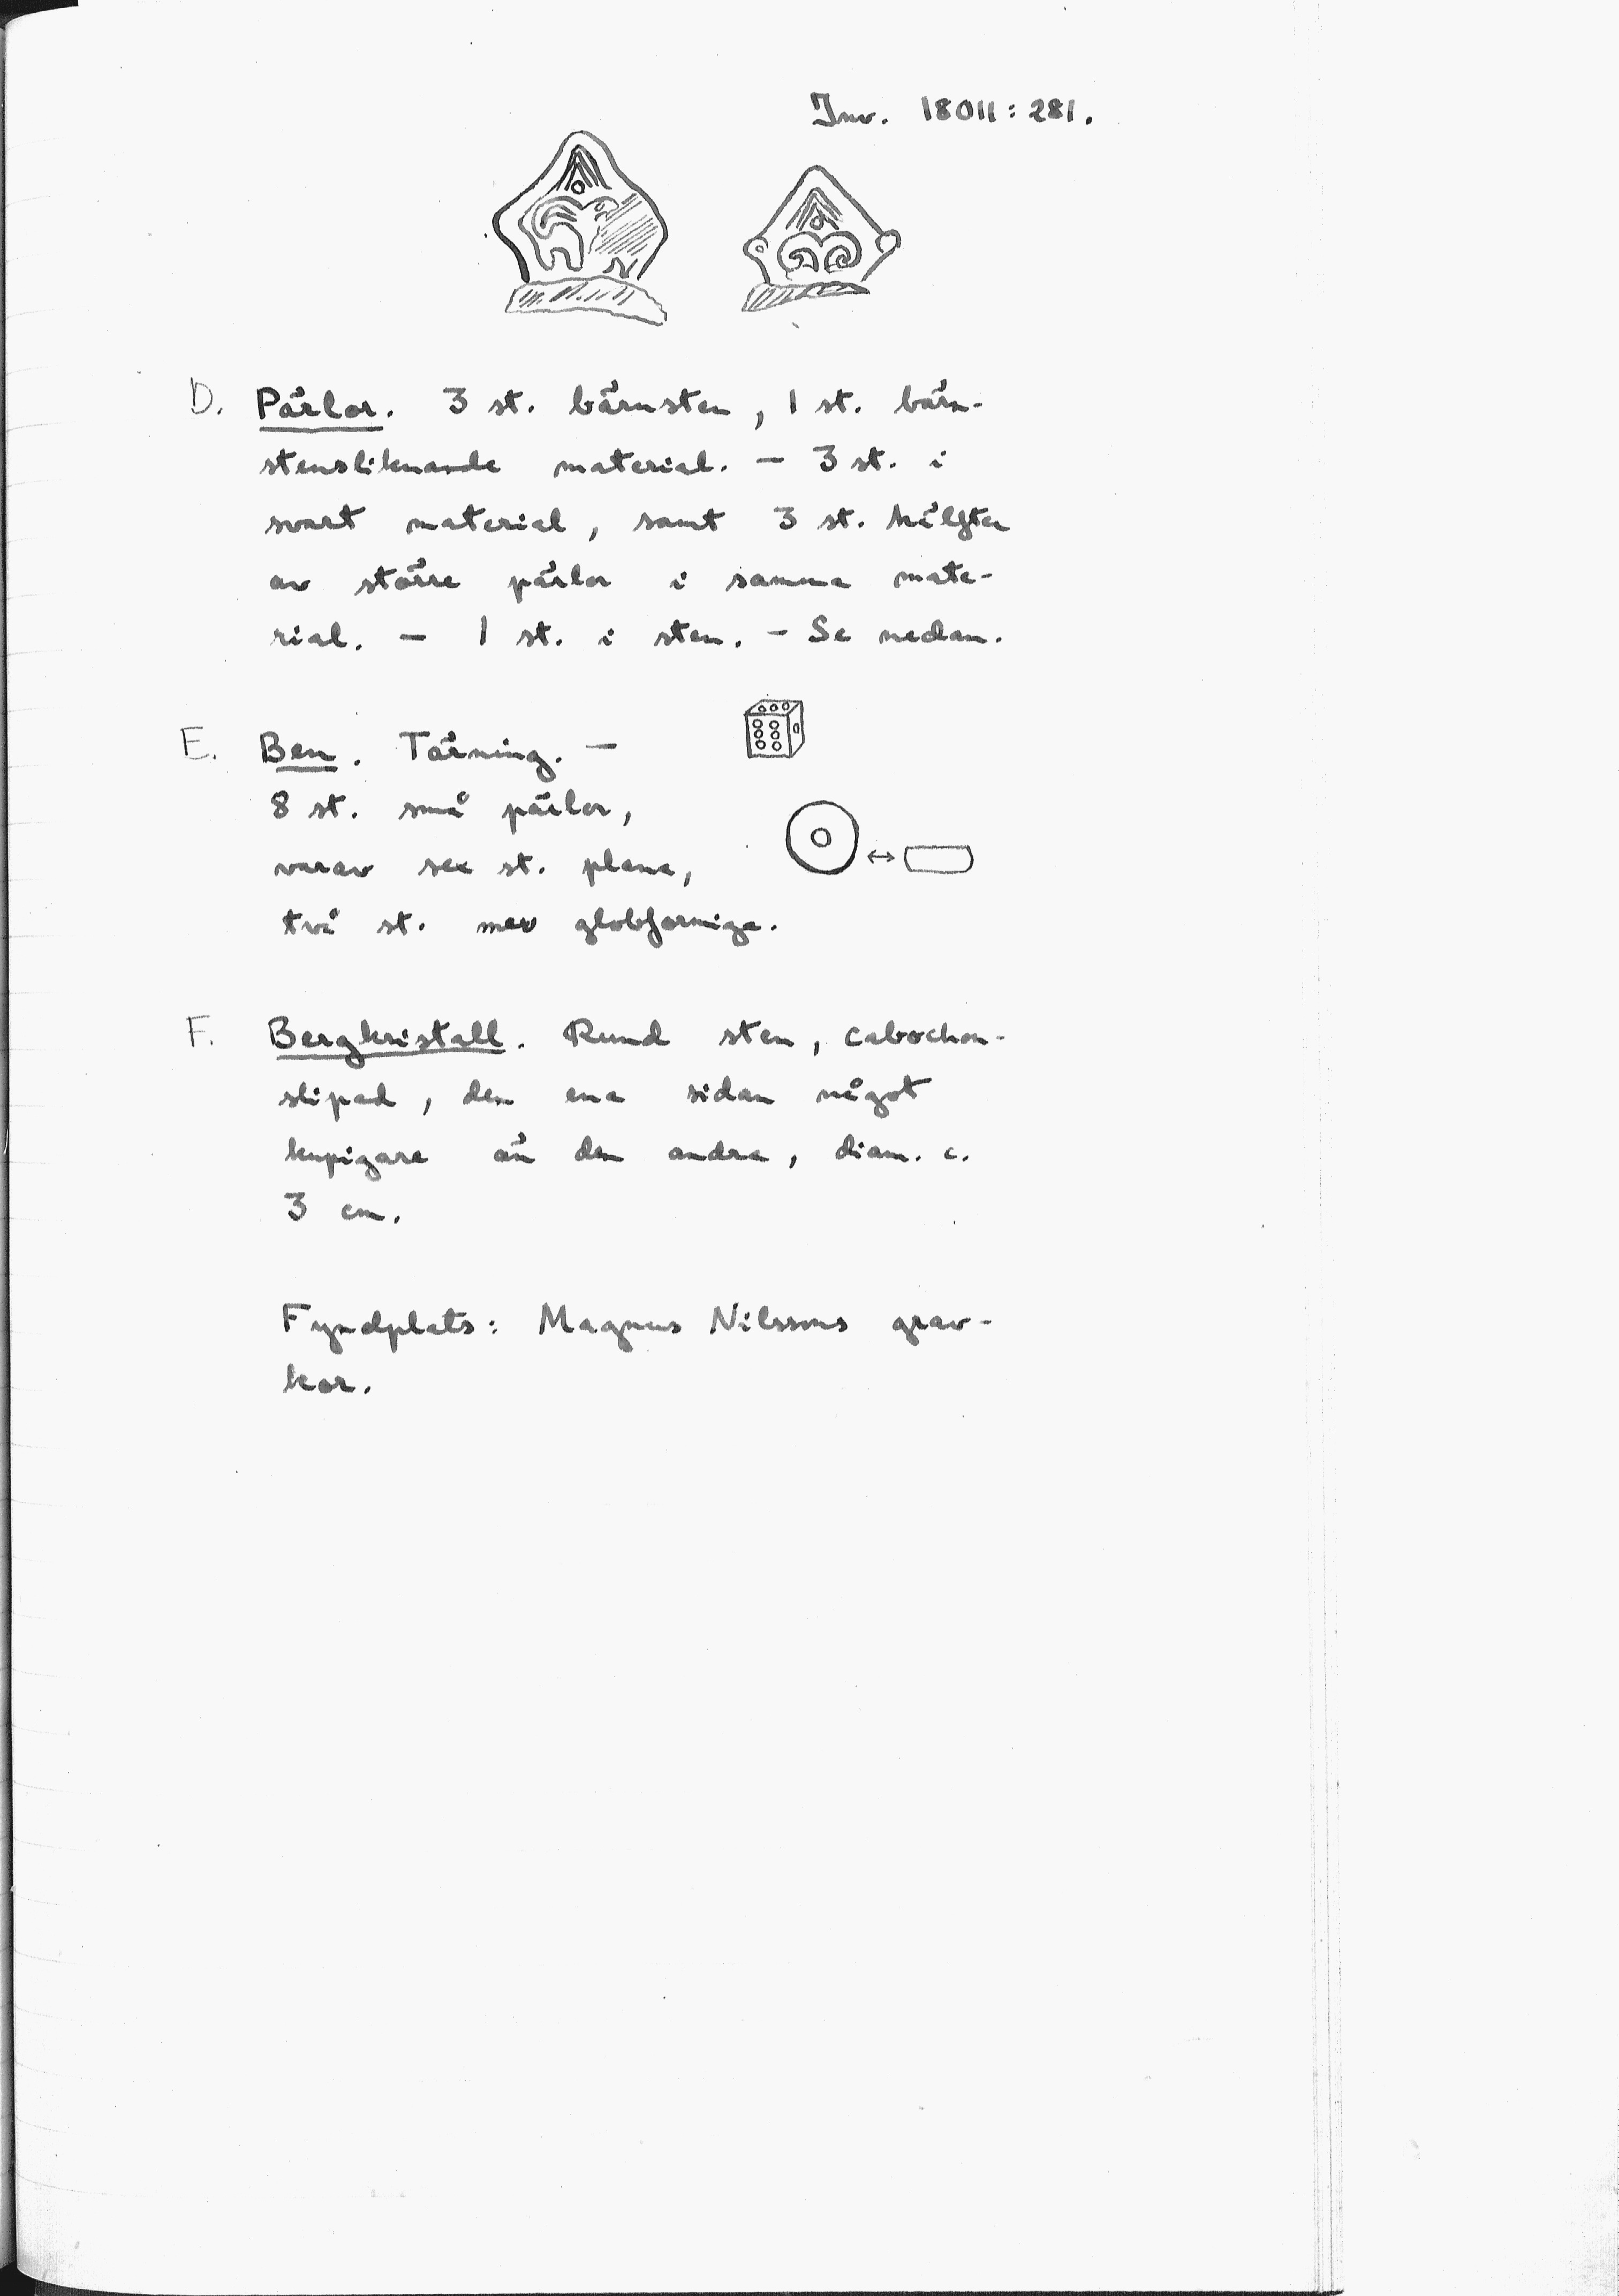 Inv. 18011:281.
D. Pärlor. 3 st. bärnsten, 1 st. bärn-
stensliknande material. - 3 st. i
svart material, samt 3 st. hälfter
av större pärlor i samma mate-
rial. - 1 st. i sten. - Se nedan.
E. Ben. Tärning. -
8 st. små pärlor,
varav sex st. plana,
två st. mer globformiga.
F. Bergkristall. Rund sten, cabochon-
slipad, den ena sidan något
kupigare än den andra, diam. c.
3 cm.
Fyndplats: Magnus Nilssons grav-
kor.